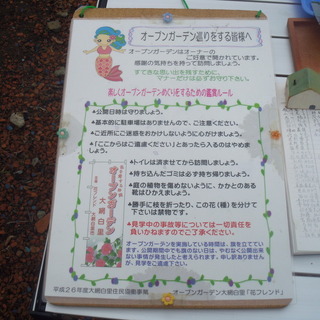 オープンガーデン巡りをする皆様へ
オープンガーデンはオーナーの
ご好意で開かれています。
感謝の気持ちを持って訪問しましょう。
すてきな思い出を残すために、
マナーだけは必ずお守り下さい。
楽しくオープンガーデンめぐりをするための鑑賞ルール
★公開日時は守りましょう。
★基本的に駐車場はありませんので、ご注意ください。
★ご近所にご迷惑をおかけしないように心がけましょう。
★「ここからはご遠慮ください」とあったら入るのはやめましょう。
★トイレは済ませてから訪問しましょう。
★持ち込んだゴミは必ず持ち帰りましょう。
★庭の植物を傷めないように、かかとのある
靴はひかえましょう。
★勝手に枝を折ったり、この花(種)を分けて
下さいは禁物です。
★見学中の事故等については一切責任を
負いかねますのでご了承ください。
オープンガーデンを実施している期間は、旗を立てています。
公開期間中でも旗のない日は、やむなく公開出来ない
事情が発生したと考えられます。申し訳ありませんが、
見学をご遠慮下さい。
オープンガーデン
大網白里
平成26年度大網白里市住民協働事業
オープンガーデン大網白里「花フレンド」